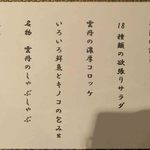 18種類の欲張りサラダ
雲丹の濃厚コロッケ
いろいろ鮮魚とキノコの包み
名物 雲丹のしゃぶしゃぶ